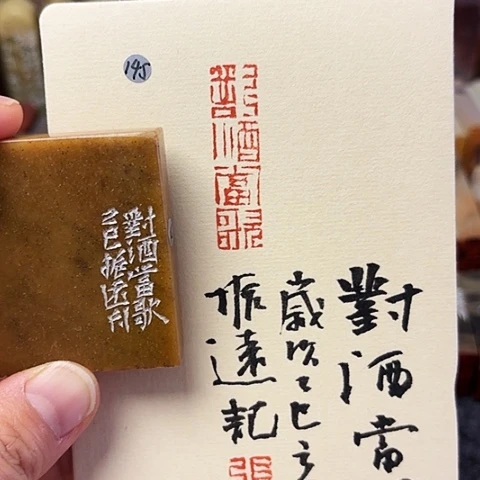 145
對酒當歌
對酒當歌
乙巳振遠刊
對酒當
歲次乙巳
振遠記